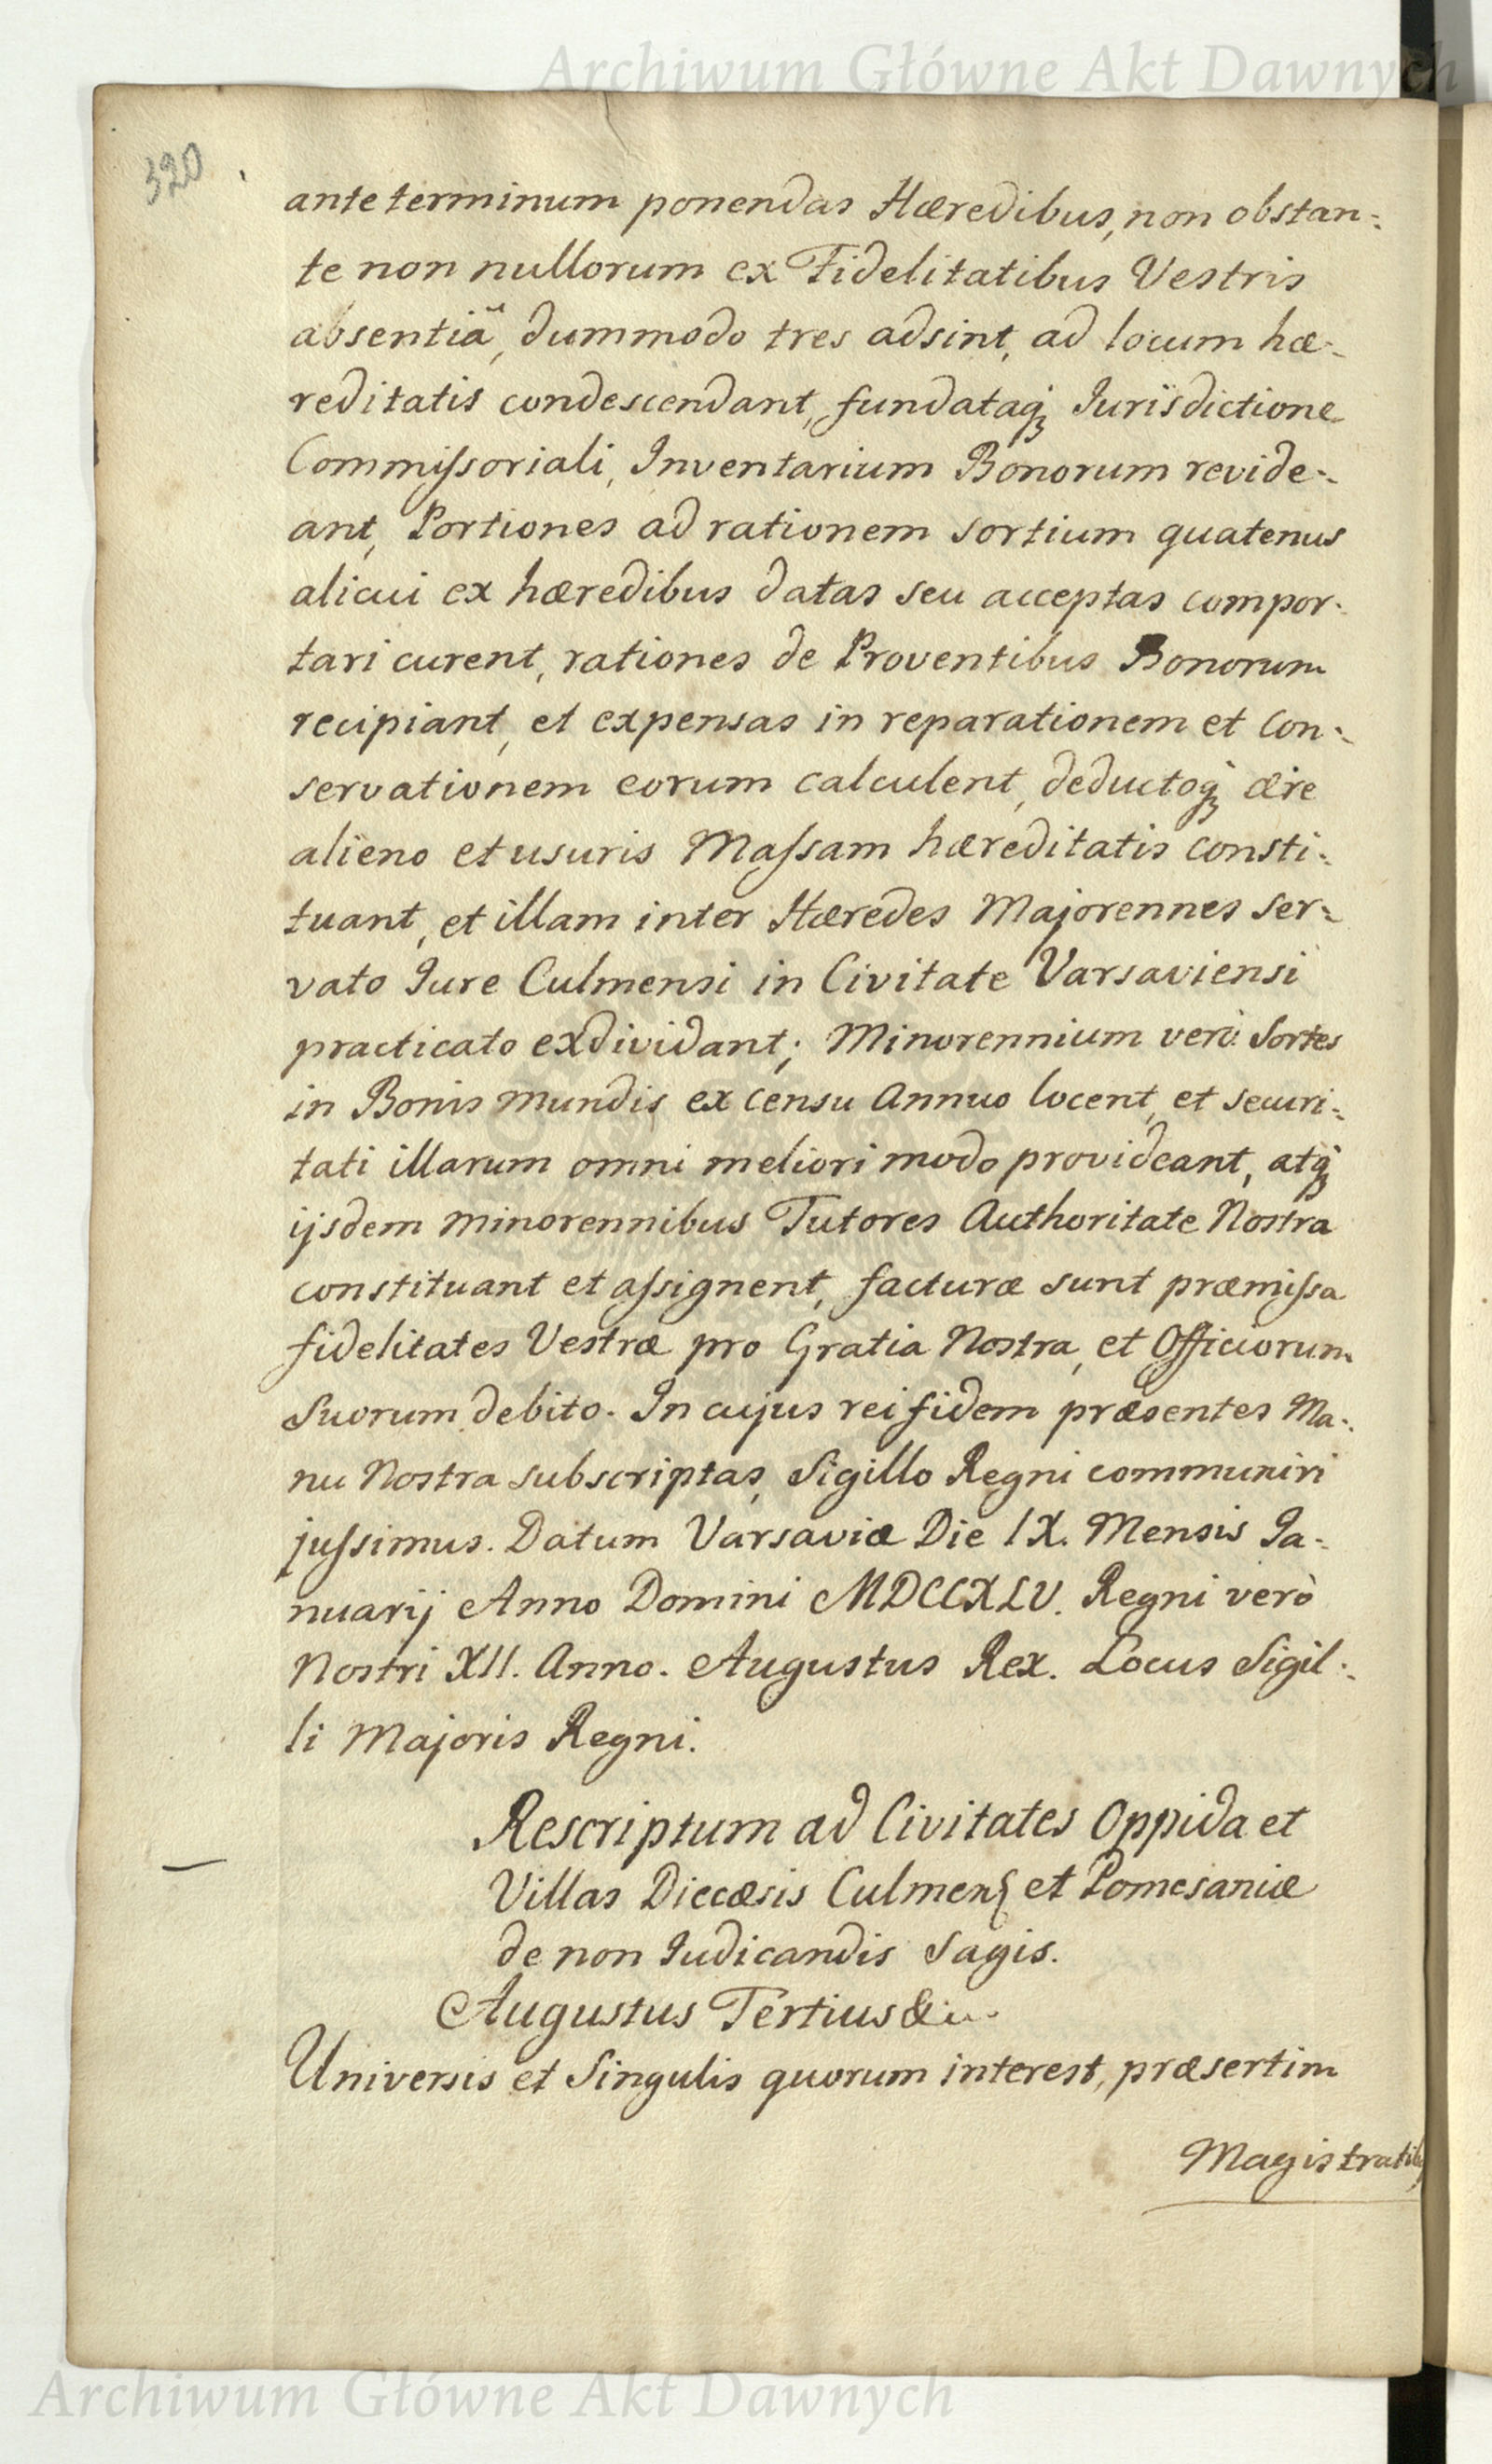 Archiwum Główne Akt Dawnych
320
ante terminum ponendas Hæredibus, non obstan:
te non nullorum ex Fidelitatibus Vestris
absentiâ, dummodo tres adsint, ad locum hæ:
reditatis condescendant, fundataq; Jurisdictione
Commiſsoriali, Inventarium Bonorum revide:
ant, Portiones ad rationem sortium quatenus
alicui ex hæredibus datas seu acceptas compor:
tari curent, rationes de Proventibus Bonorum
recipiant, et expensas in reparationem et Con:
servationem eorum calculent, deductoq; ære
alieno et usuris Maſsam hæreditatis consti:
tuant, et illam inter Hæredes Majorennes ser:
vato Jure Culmensi in Civitate Varsaviensi
practicato exdividant; Minorennium verò Sortes
in Bonis mundis ex censu Annuo locent, et securi:
tati illarum omni meliori modo provideant, atq;
ijsdem minorennibus Tutores Authoritate Nostra
constituant et aſsignent, facturæ sunt præmiſsa
fidelitates Vestræ pro Gratia Nostra, et Officiorum
Suorum debito. In cujus rei fidem præsentes Ma:
nu Nostra subscriptas, Sigillo Regni communiri
juſsimus. Datum Varsaviæ Die IX. Mensis Ja:
nuarij Anno Domini MDCCXLV. Regni verò
Nostri XII. Anno. Augustus Rex. Locus Sigil:
li Majoris Regni.
Rescriptum ad Civitates Oppida et
Villas Diecæsis Culmens et Pomesaniæ
de non Judicandis Sagis.
Augustus Tertius &c.
Universis et Singulis quorum interest, præsertim
Magistratib;
Archiwum Główne Akt Dawnych